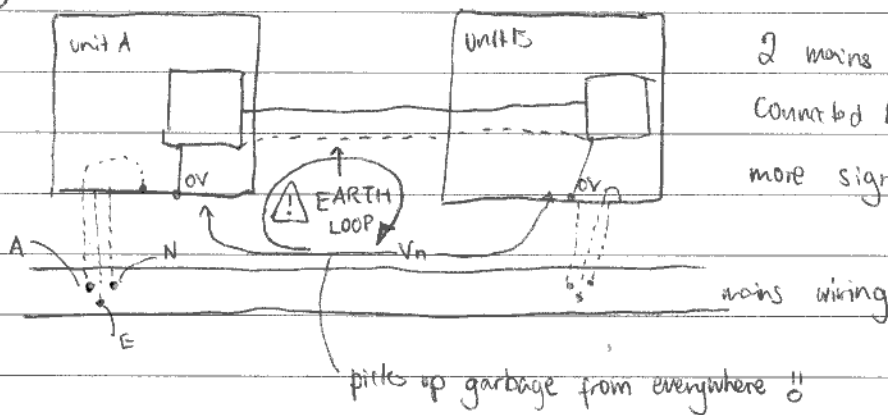 unit A
unit B
2 mains
Connected
more sig
0V
0V
EARTH
LOOP
Vn
A
N
E
mains wiring
picks up garbage from everywhere !!